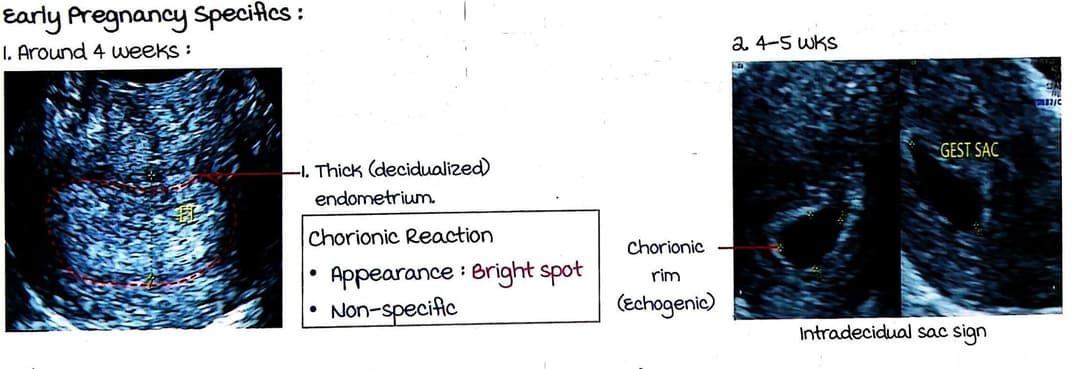 Early Pregnancy Specifics :
1. Around 4 weeks :
ET
1. Thick (decidualized)
endometrium.
Chorionic Reaction
• Appearance : Bright spot
• Non-specific
2. 4-5 wks
GEST SAC
Chorionic
rim
(Echogenic)
Intradecidual sac sign